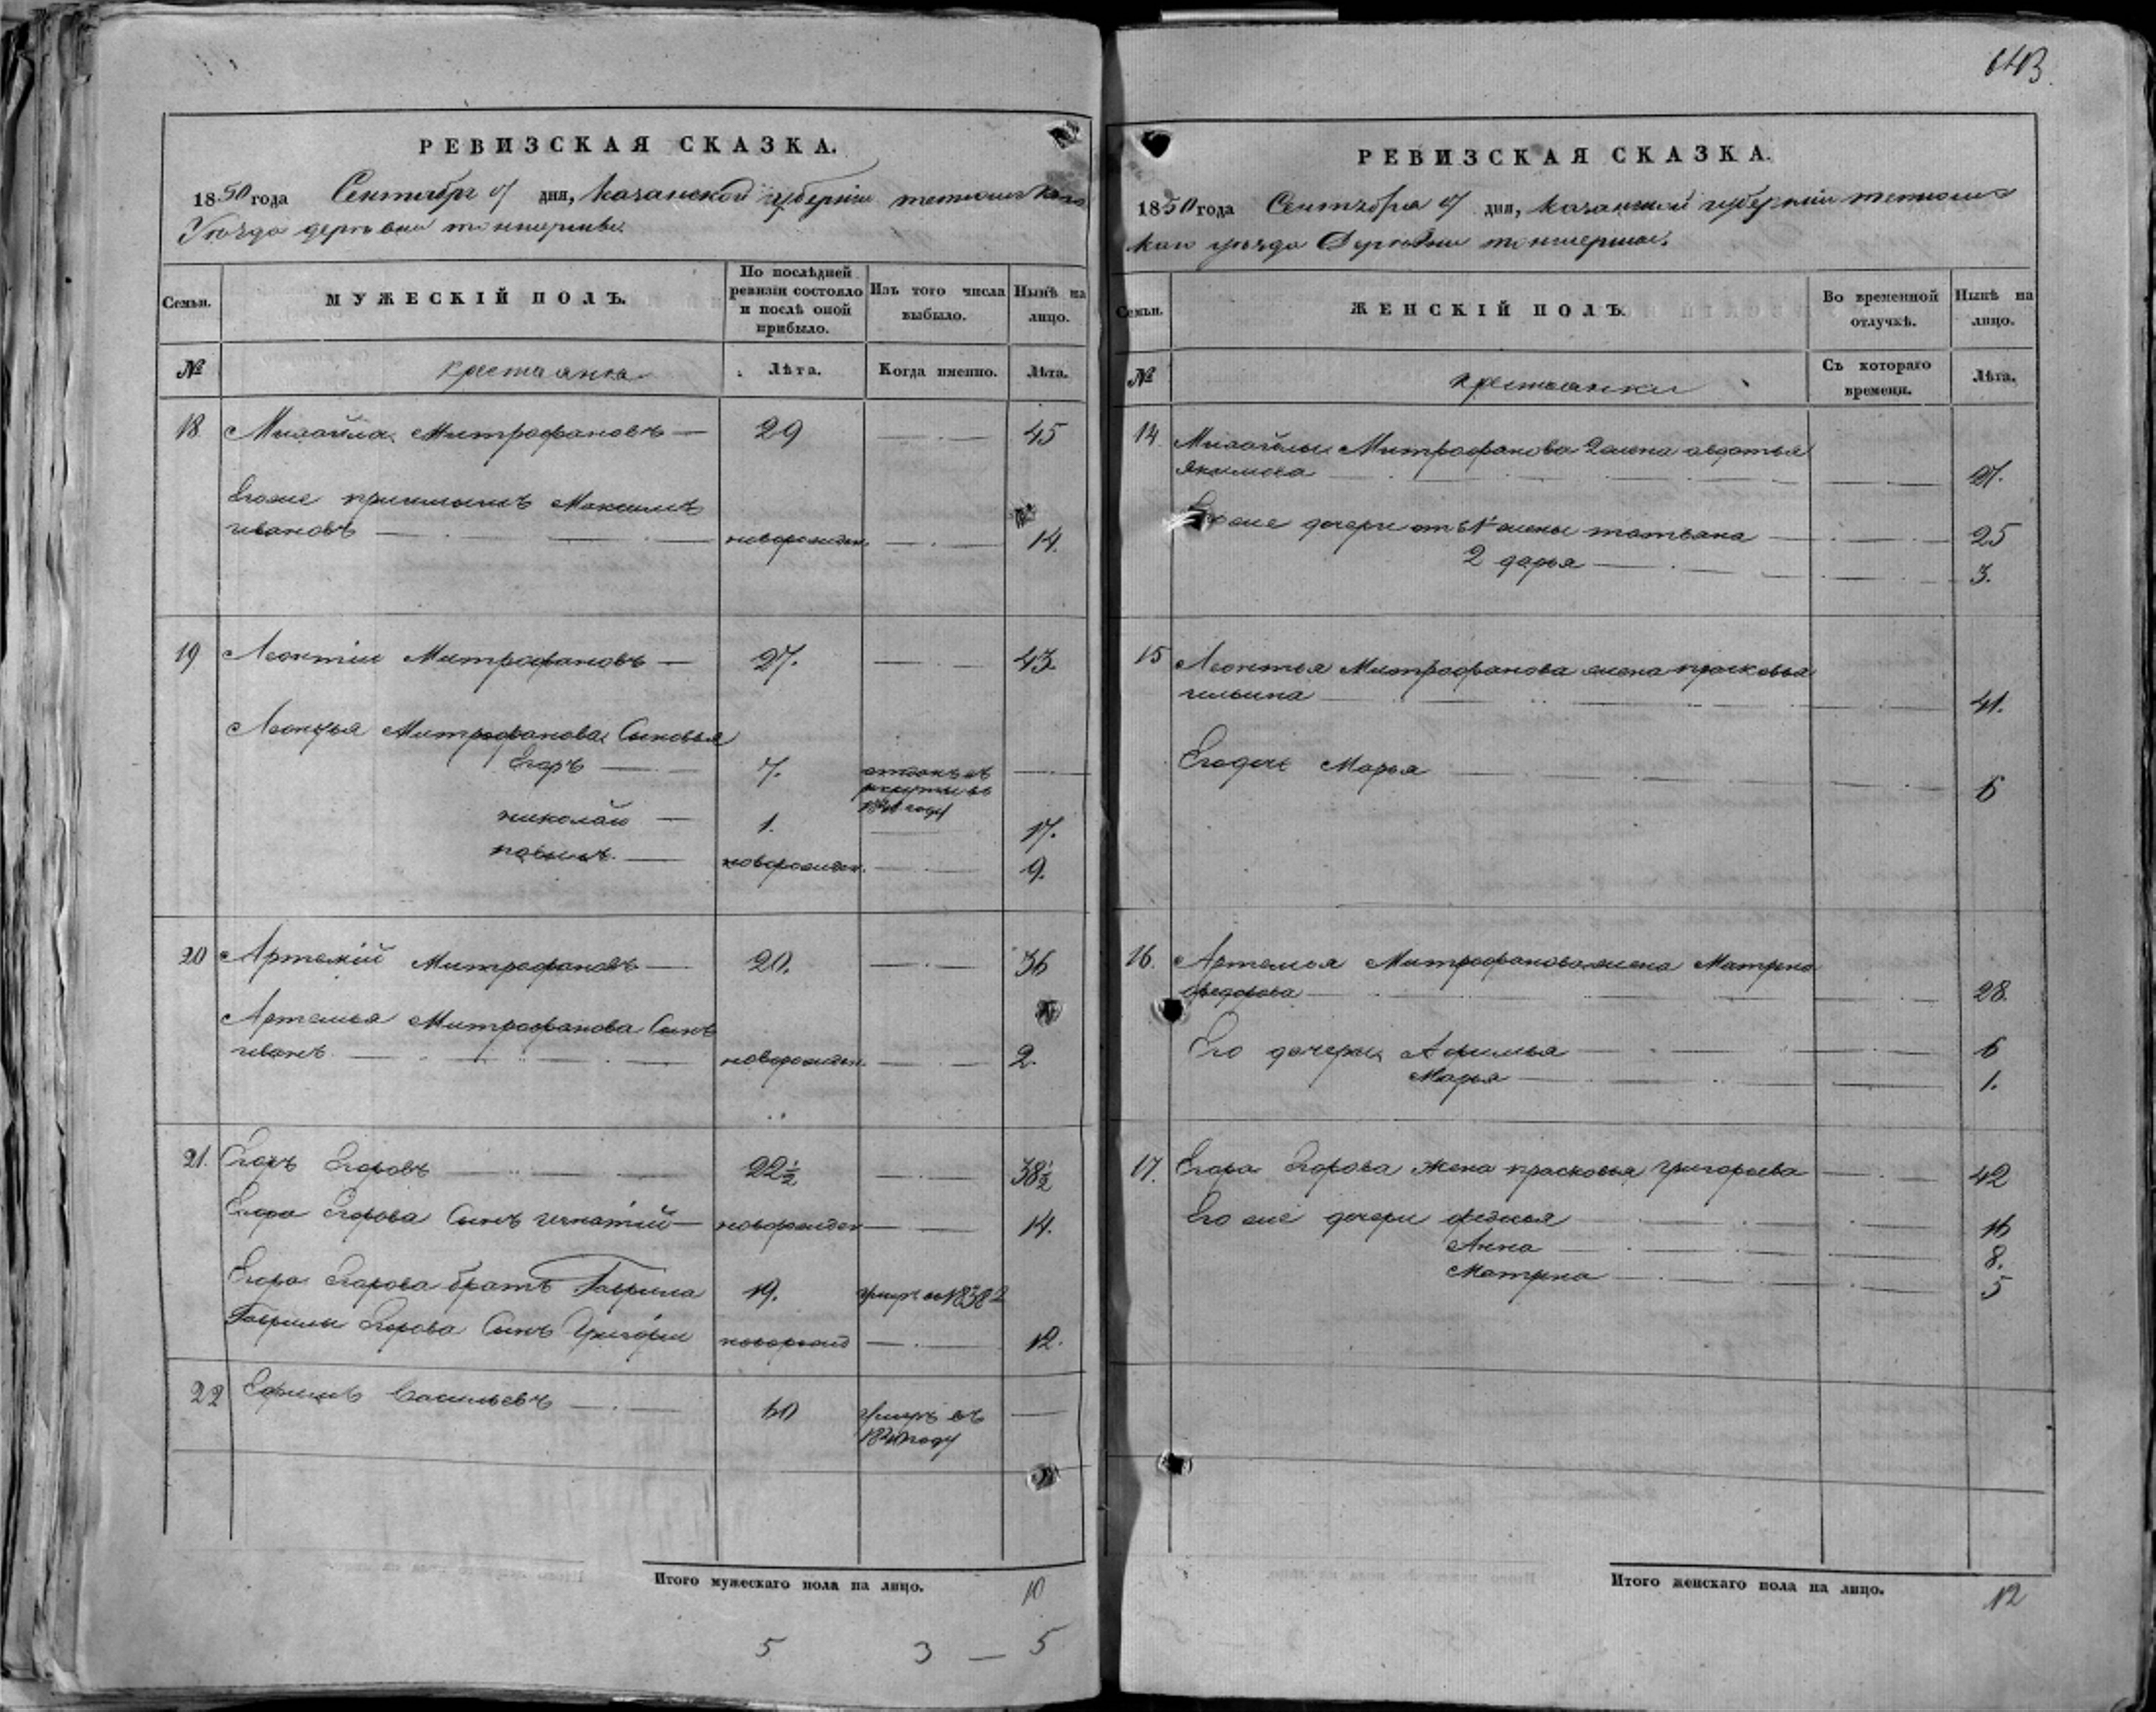 РЕВИЗСКАЯ СКАЗКА.
1850 года Сентября дня, Казанской губерніи тетюшскаго
Уѣзда деревни
Семьи. МУЖЕСКІЙ ПОЛЪ. По послѣдней ревизіи состояло и послѣ оной прибыло. Изъ того числа выбыло. Нынѣ на лицо.
№ крестьяне Лѣта. Когда именно. Лѣта.
18 Михайла Митрофановъ 29 45
Егоже приемышъ Максимъ
ивановъ новорожден 14.
19 Леонтіи Митрофановъ 27. 43.
Леонтья Митрофанова Сыновья
Егоръ 7. отданъ въ
рекруты въ
184 году
николай 1. 17.
новорожден. 9.
20 Артемій Митрофановъ 20. 36
Артемья Митрофанова Сынъ
иванъ новорожден. 2.
21. Егоръ Егоровъ 22½ 38½
Егора Егорова Сынъ игнатій новорожден 14.
Егора Егорова братъ Гаврила 19. умеръ 1838
Гаврилы Егорова Сынъ Григории новорожд 12.
22 Ефимъ Васильевъ 60 Умеръ въ
184 году
Итого мужескаго пола на лицо. 10
5 3 — 5
643.
РЕВИЗСКАЯ СКАЗКА.
1850 года Сентября дня, Казанской губерніи тетюшс
каго уѣзда Деревни
Семьи. ЖЕНСКІЙ ПОЛЪ. Во временной отлучкѣ. Нынѣ на лицо.
№ крестьянки Съ котораго времени. Лѣта.
14. Михайлы Митрофанова 2 жена авдотья
Якимова 27.
Егоже дочери отъ 1й жены татьана 25
2 дарья 3.
15 Леонтья Митрофанова жена прасковья
ильина 41.
Его дочь Марья 6
16. Артемья Митрофанова жена Матрена
Ѳедорова 28.
Его дочери Афимья 6
Марья 1.
17. Егора Егорова жена прасковья григорьева 42
Его же дочери 16
Анна 8.
Матрена 5
Итого женскаго пола на лицо. 12